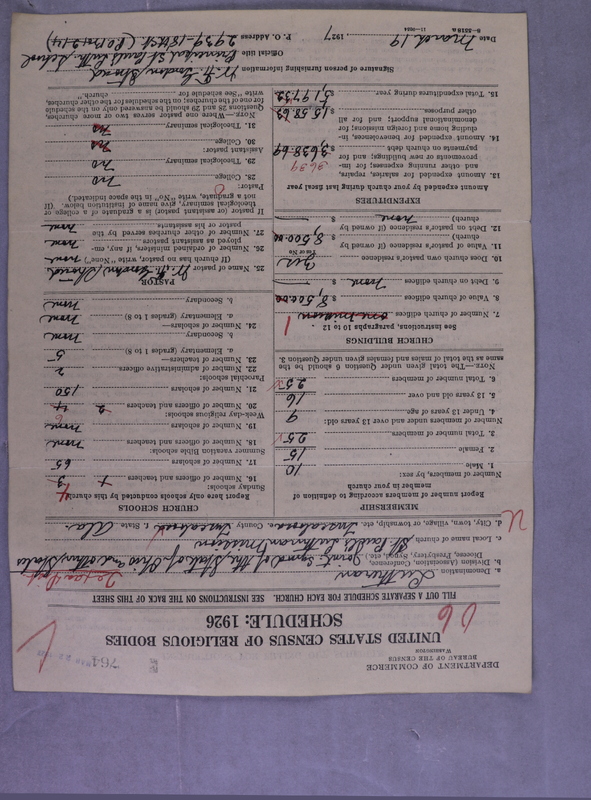 DEPARTMENT OF COMMERCE
BUREAU OF THE CENSUS
WASHINGTON
764
UNITED STATES CENSUS OF RELIGIOUS BODIES
SCHEDULE: 1926
FILL OUT A SEPARATE SCHEDULE FOR EACH CHURCH. SEE INSTRUCTIONS ON THE BACK OF THIS SHEET
a. Denomination Lutheran
b. Division (Association, Conference, Diocese, Presbytery, Synod, etc.) Joint Synod of the State of Ohio and other States
c. Local name of church St. Paul's Lutheran Mission
d. City, town, village, or township Tuscaloosa County Tuscaloosa State Ala.
MEMBERSHIP
Report number of members according to definition of member in your church
Number of members, by sex:
1. Male 10
2. Female 15
3. Total number of members 25
Number of members under and over 13 years old:
4. Under 13 years of age 9
5. 13 years old and over 16
6. Total number of members 25
NOTE.—The total given under Question 6 should be the same as the total of males and females given under Question 3.
CHURCH BUILDINGS
See instructions, paragraphs 10 to 12
7. Number of church edifices 1
8. Value of church edifices $ 8,500.00
9. Debt on church edifices $ none
10. Does church own pastor's residence Yes
Yes or No
11. Value of pastor's residence (if owned by church) $ 8,500.00
12. Debt on pastor's residence (if owned by church) $ none
EXPENDITURES
Amount expended by your church during last fiscal year
13. Amount expended for salaries, repairs, and other running expenses; for improvements or new buildings; and for payments on church debt $ 3,638.69
3639
14. Amount expended for benevolences, including home and foreign missions; for denominational support; and for all other purposes $ 1558.63
15. Total expenditures during year $ 5197.32
CHURCH SCHOOLS
Report here only schools conducted by this church
Sunday schools:
16. Number of officers and teachers
17. Number of scholars 65
Summer vacation Bible schools:
18. Number of officers and teachers none
19. Number of scholars none
Week-day religious schools:
20. Number of officers and teachers
21. Number of scholars 150
Parochial schools:
22. Number of administrative officers 2
23. Number of teachers—
a. Elementary (grades 1 to 8) 5
b. Secondary none
24. Number of scholars—
a. Elementary (grades 1 to 8) none
b. Secondary none
PASTOR
25. Name of pastor
(If church has no pastor, write "None")
26. Number of ordained ministers, if any, employed as assistant pastors none
27. Number of other churches served by the pastor or his assistants none
If pastor or assistant pastor is a graduate of a college or theological seminary, give name of institution below. (If not a graduate, write "No" in the space indicated.)
Pastor:
28. College no
29. Theological seminary no
Assistant pastor:
30. College no
31. Theological seminary no
NOTE.—Where one pastor serves two or more churches, Questions 28 and 29 should be answered only on the schedule for one of the churches; on the schedules for the other churches, write "See schedule for church."
Signature of person furnishing information
Official title Principal, St. Pauls Luth. School
P. O. Address 2939-18th St. (P.O. Box 214)
Date March 19, 1927
8-5518a 11-9084